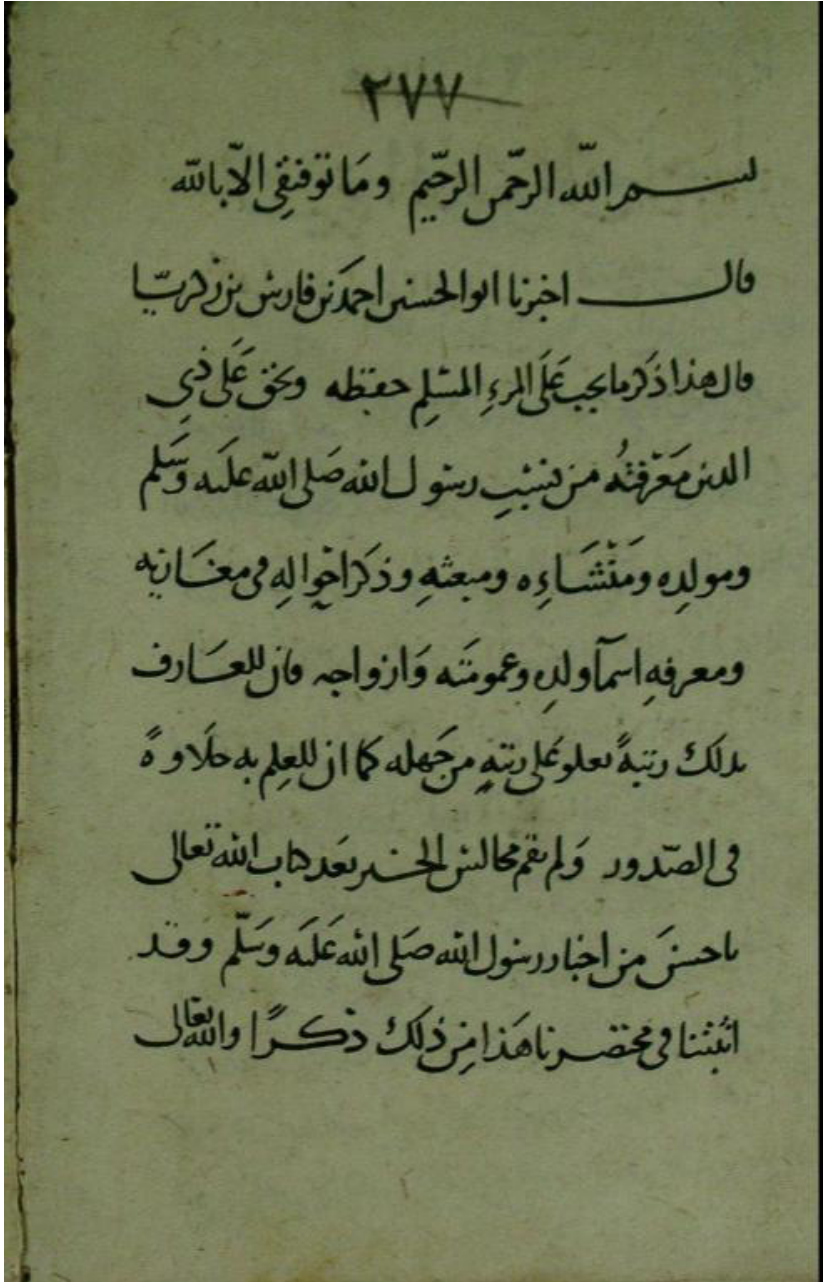 ٢٧٧
بسم الله الرحمن الرحيم وما توفيقي الا بالله
قال اخبرنا ابو الحسين احمد بن فارس بن زكريا
قال هذا ذكر ما يجب عَلَى المرءِ المسلِم حفظه ويحق عَلَى ذي
الدين مَعْرفتُه من نسَبِ رسول الله صَلى الله عليه وسَلم
ومولدِه ومَنْشَاءِه ومبعثهِ وذكر احوالِهِ في مغَازيه
ومعرفهِ اسمآ ولدِه وعمومتَه وَازواجه فان للعَارف
بذلك رتبةً تعلو عَلى رتبهِ من جَهله كما ان للعِلم به حلَاوةً
في الصّدور وَلم تعم مجالس الخير بَعد كتاب الله تعالى
باحسنَ من اخبار رسول الله صَلى الله عَليَه وسَلّم وقد
اثبتنا في مختصرنا هَذا مِن ذلك ذكرًا والله تعالى